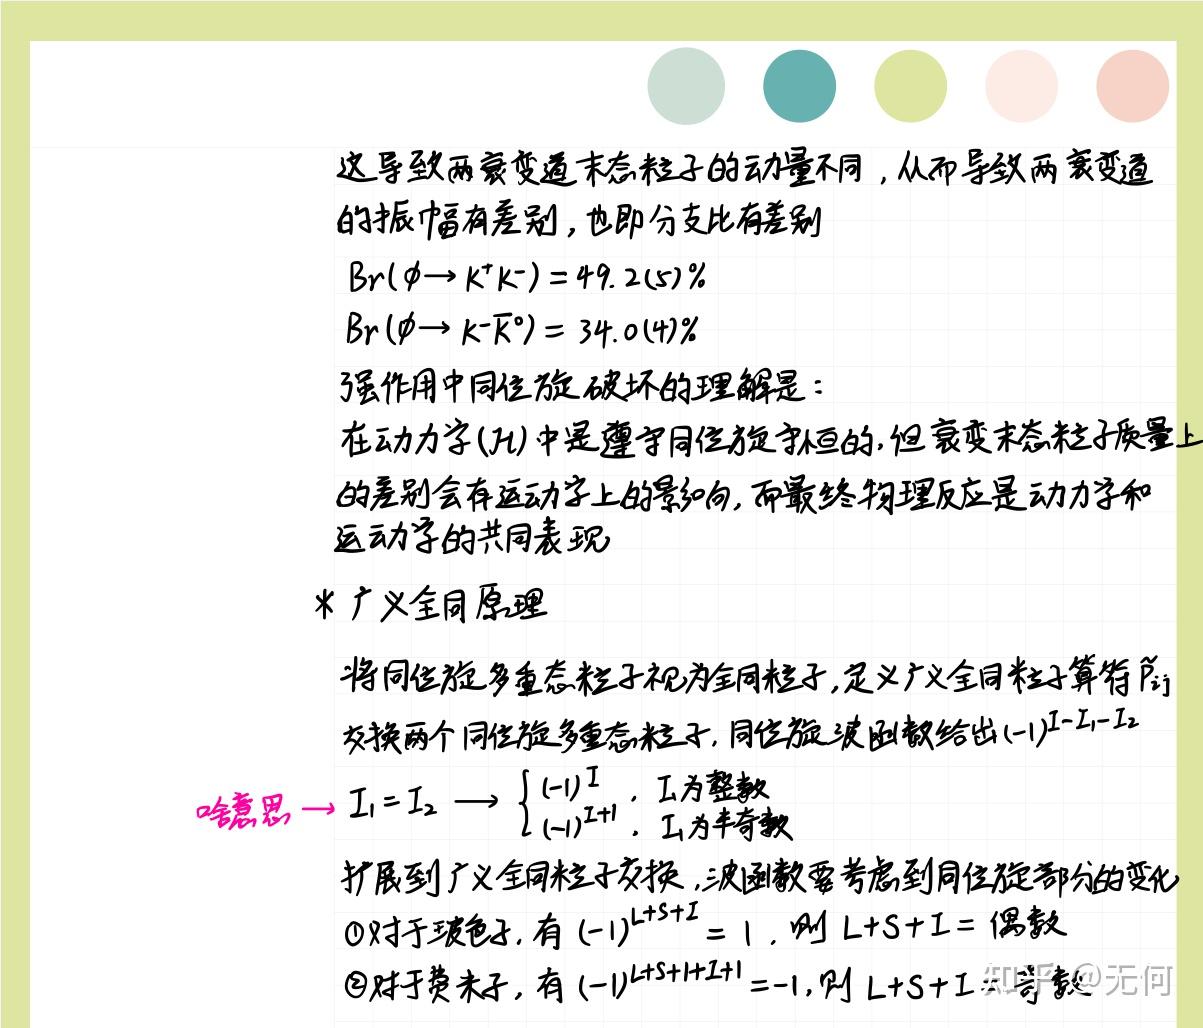 这导致两衰变道末态粒子的动量不同，从而导致两衰变道
的振幅有差别，也即分支比有差别
Br(ϕ→K⁺K⁻)=49.2(5)%
Br(ϕ→K⁻K̅⁰)=34.0(4)%
强作用中同位旋破坏的理解是：
在动力学(H)中是遵守同位旋守恒的，但衰变末态粒子质量上
的差别会有运动学上的影响，而最终物理反应是动力学和
运动学的共同表现
* 广义全同原理
将同位旋多重态粒子视为全同粒子，定义广义全同粒子算符P̃ij
交换两个同位旋多重态粒子，同位旋波函数给出(-1)^{I-I₁-I₂}
啥意思→ I₁=I₂ → { (-1)^I ，I₁为整数
(-1)^{I+1} ，I₁为半奇数
扩展到广义全同粒子交换，波函数要考虑到同位旋部分的变化
①对于玻色子，有(-1)^{L+S+I}=1，则L+S+I=偶数
②对于费米子，有(-1)^{L+S+1+I+1}=-1，则L+S+I=奇数
知乎 @无何